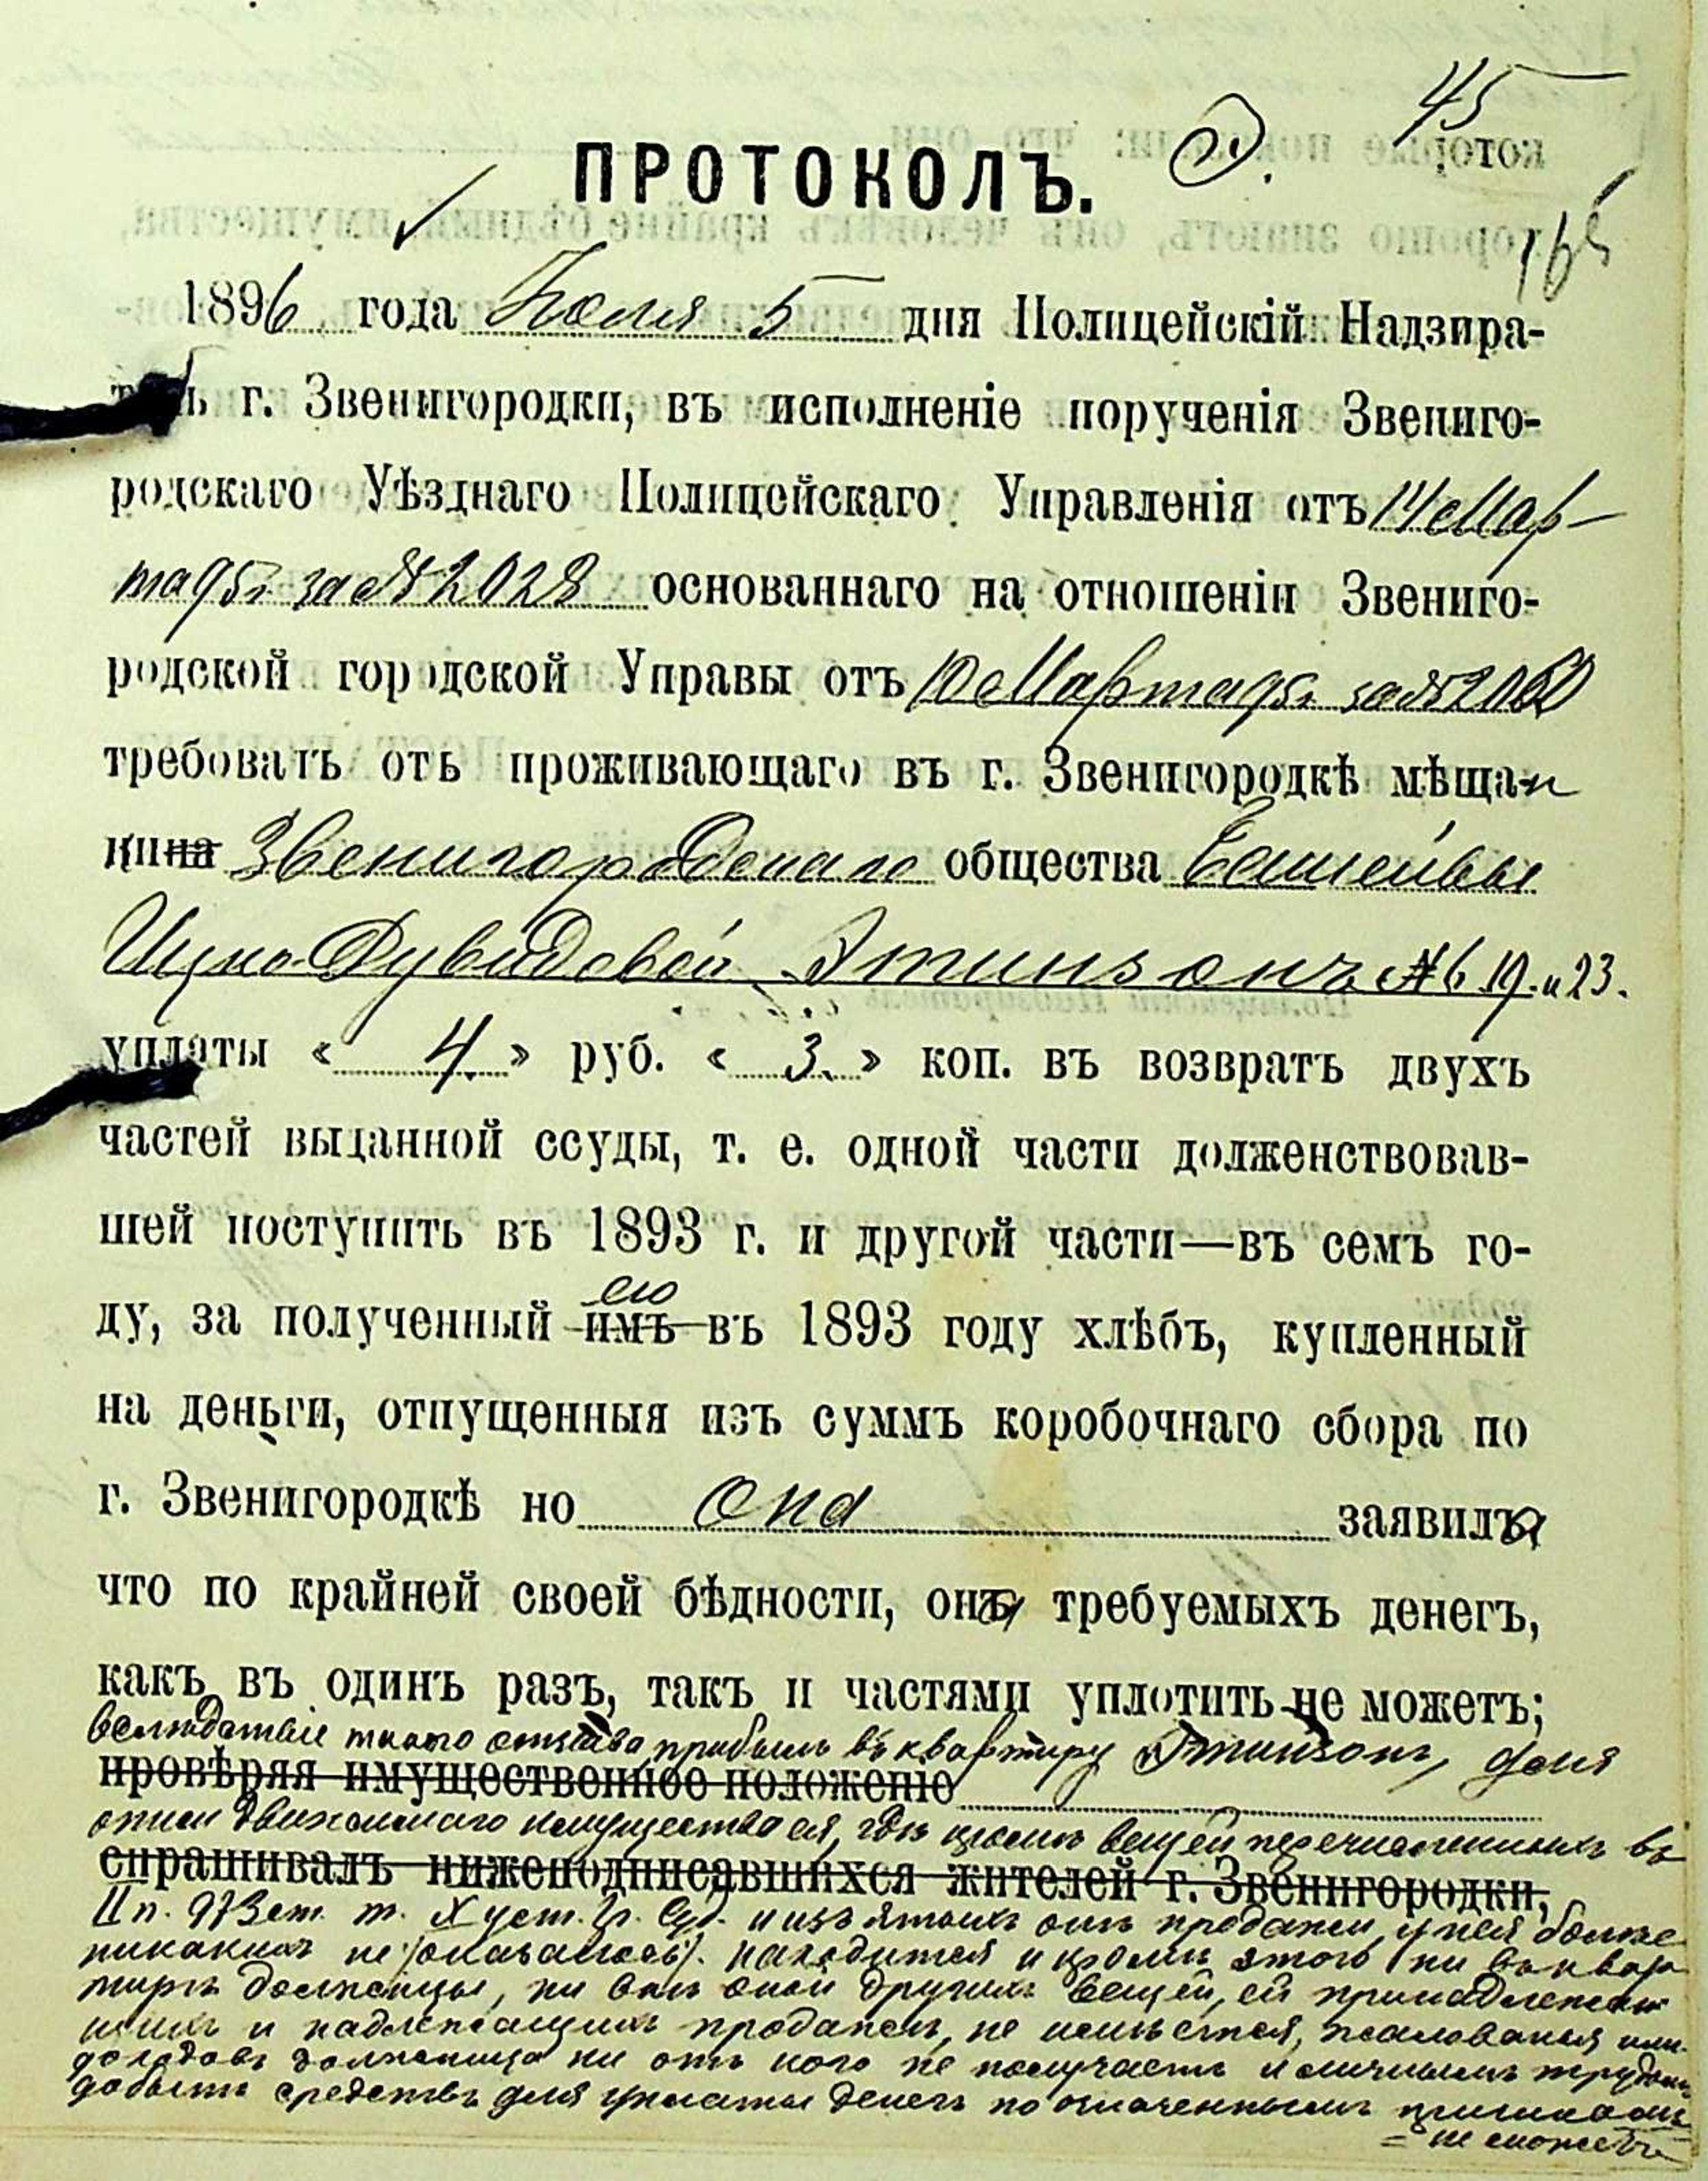 45
ПРОТОКОЛЪ.
165
1896 года Іюля 5 дня Полицейскій Надзира-
тель г. Звенигородки, въ исполненіе порученія Звениго-
родскаго Уѣзднаго Полицейскаго Управленія отъ 14 Мар-
та 95 г. за № 2028 основаннаго на отношеніи Звениго-
родской городской Управы отъ 10 Марта 95 г. за №
требовать отъ проживающаго въ г. Звенигородкѣ мѣщан
ина Звенигородскаго общества Башейвы
Ицко-Дувидовой Этинзонъ № 6. 19. и 23.
уплаты « 4. » руб. « 3. » коп. въ возвратъ двухъ
частей выданной ссуды, т. е. одной части долженствовав-
шей поступить въ 1893 г. и другой части—въ семъ го-
ею
ду, за полученный имъ въ 1893 году хлѣбъ, купленный
на деньги, отпущенныя изъ суммъ коробочнаго сбора по
г. Звенигородкѣ но она заявила
что по крайней своей бѣдности, она требуемыхъ денегъ,
какъ въ одинъ разъ, такъ и частями уплотить не можетъ;
вслѣдствіе такого отзыва прибылъ въ квартиру Этинзонъ, для
провѣряя имущественное положеніе
описи движимаго имущества ея, гдѣ кромѣ вещей перечисленныхъ въ
спрашивалъ нижеподписавшихся жителей г. Звенигородки,
II п. 973 ст. т. X уст. Гр. Суд. и изъятыхъ отъ продажи, у нея болѣе
никакихъ не (оказалось). находится и кромѣ этого ни въ квар
тирѣ должницы, ни внѣ оной другихъ вещей, ей принадлежа
щихъ и надлежащихъ продажѣ, не имѣется, жалованья или
доходовъ должница ни отъ кого не получаетъ и личнымъ трудомъ
добыть средствъ для уплаты денегъ по означеннымъ
не можетъ